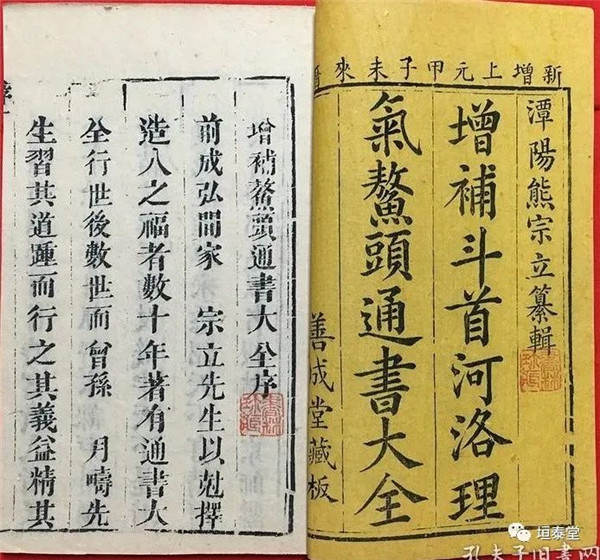 新增上元甲子未來曆
潭陽熊宗立纂輯
增補斗首河洛理
氣鰲頭通書大全
善成堂藏板
增補鰲頭通書大全序
前成弘間家 宗立先生以尅擇
造人之福者數十年著有通書大
全行世後數世而曾孫 月疇先
生習其道踵而行之其義益精其
垣泰堂
孔夫子旧书网